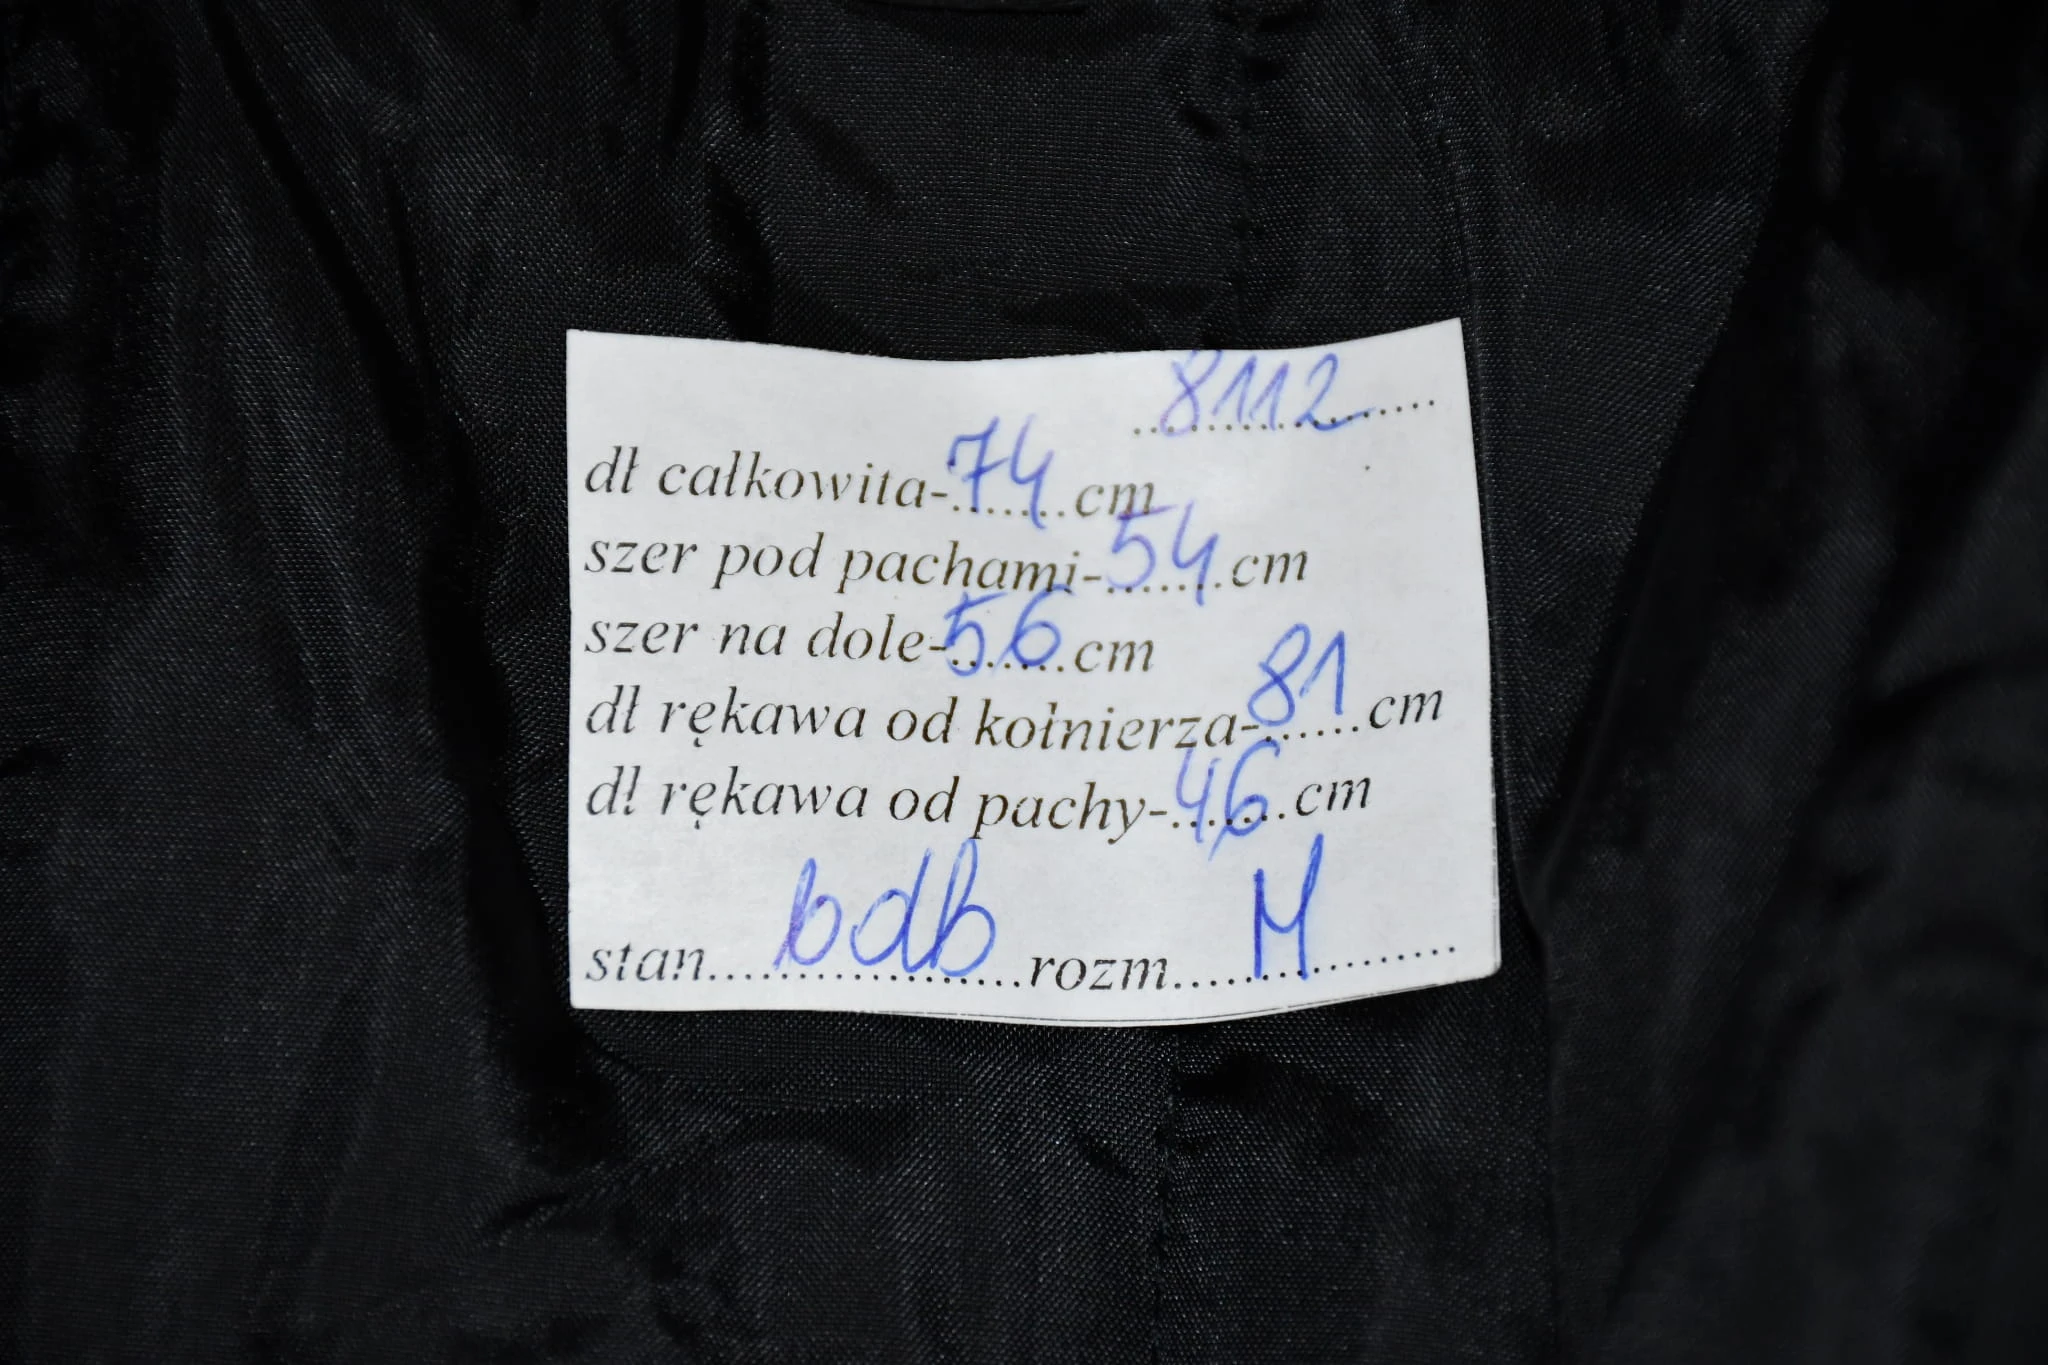 8112
dł całkowita-74cm
szer pod pachami-54cm
szer na dole-56cm
dł rękawa od kołnierza-81cm
dł rękawa od pachy-46cm
stan bdb rozm M